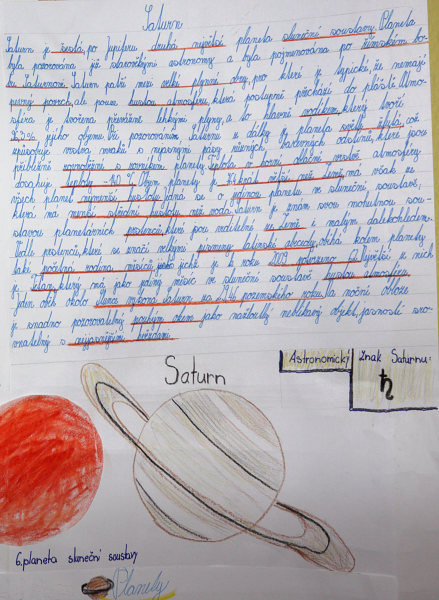 Saturn
Saturn je šestá, po Jupiteru druhá největší planeta sluneční soustavy. Planeta
byla pozorována již starověkými astronomy a byla pojmenována po římském bo-
hu Saturnovi. Saturn patří mezi velké plynné obry, pro které je typické, že nemají
pevný povrch, ale pouze hustou atmosféru, která postupně přechází do pláště. Atmo-
sféra je tvořena převážně lehkými plyny, a to hlavně vodíkem, který tvoří
96,3% jejího objemu. Při pozorování Saturnu z dálky je planeta světle žlutá, což
způsobuje vrstva mraků s nejasnými pásy různých barevných odstínů, které jsou
přibližně rovnoběžné s rovníkem planety. Teplota v horní oblačné vrstvě atmosféry
dosahuje teploty -140 °C. Objem planety je 764krát větší než Země, má však ze
všech planet nejmenší hustotu. Jedná se o jedinou planetu ve sluneční soustavě,
která má menší střední hustotu než voda. Saturn je znám svou mohutnou sou-
stavou planetárních prstenců, které jsou viditelné ze Země i malým dalekohledem.
Vedle prstenců, které se značí velkými písmeny latinské abecedy, obíhá kolem planety
také početná rodina měsíců, u níž je k roku 2009 potvrzeno 62. Největší z nich
je Titan, který má jako jediný měsíc ve sluneční soustavě hustou atmosféru.
Jeden oběh okolo Slunce vykoná Saturn za 29,46 pozemského roku. Na noční obloze
je snadno pozorovatelný pouhým okem jako nažloutlý neblikavý objekt, jasností sro-
vnatelný s nejjasnějšími hvězdami.
Astronomický znak Saturnu:
♄
Saturn
6. planeta sluneční soustavy
Planety